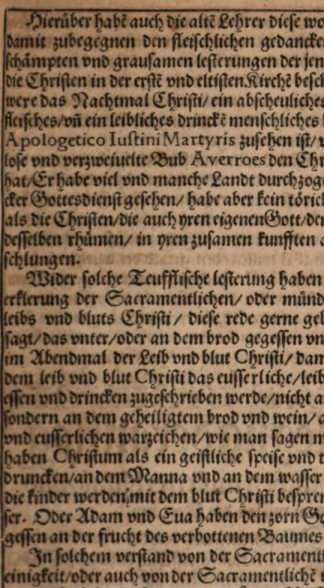 Hierüber habẽ auch die altẽ Lehrer diese wo
damit zubegegnen den fleischlichen gedancke
schämpten vnd grausamen lesterungen der jen
die Christen in der erstẽ vnd eltistẽ Kirchẽ besch
were das Nachtmal Christi/ ein abscheuliches
fleisches/ vñ ein leibliches drinckẽ menschliches
Apologetico Iustini Martyris zusehen ist/
lose vnd verzweiuelte Bub Averroes den Chr
hat/ Er habe viel vnd manche Landt durchzog
cker Gottesdienst gesehen/ habe aber kein törich
als die Christen/ die auch yren eigenen Gott/ den
desselben rhümen/ in yren zusamen kunfften
schlungen.
Wider solche Teufflische lesterung haben
erklerung der Sacramentlichen/ oder münd
leibs vnd bluts Christi/ diese rede gerne gel
sagt/ das vnter/ oder an dem brod gegessen vn
im Abendmal der Leib vnd blut Christi/ dam
dem leib vnd blut Christi das eusserliche/ leib
essen vnd drincken zugeschrieben werde/ nicht a
sondern an dem geheiligtem brod vnd wein/
vnd eusserlichen warzeichen/ wie man sagen m
haben Christum als ein geistliche speise vnd t
druncken/ an dem Manna vnd an dem wasser
die kinder werden mit dem blut Christi bespren
ser. Oder Adam vnd Eua haben den zorn Go
gessen an der frucht des verbottenen Baumes
In solchem verstand von der Sacrament
einigkeit/ oder auch von der Sacramentlichẽ